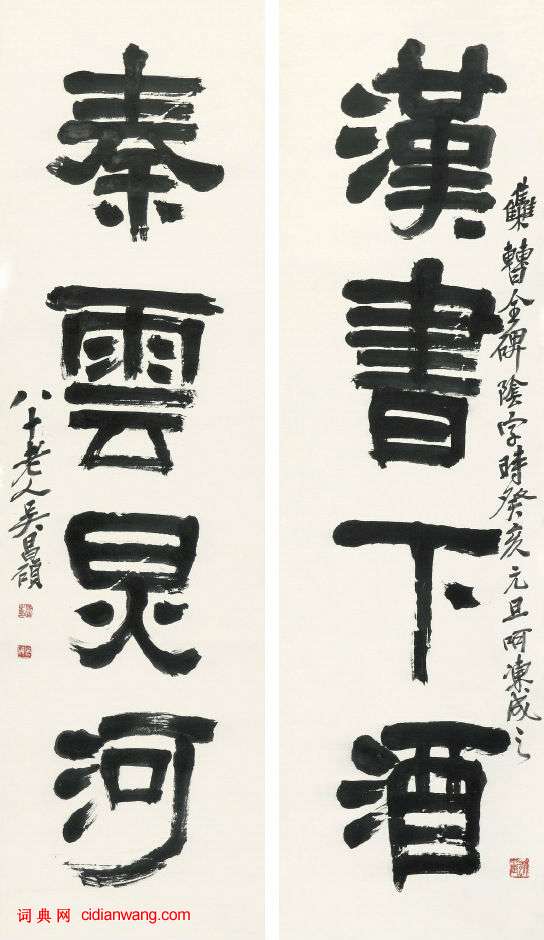 漢書下酒
集曹全碑陰字時癸亥元旦呵凍成之
秦雲炅河
八十老人吳昌碩
词典网 cidianwang.com